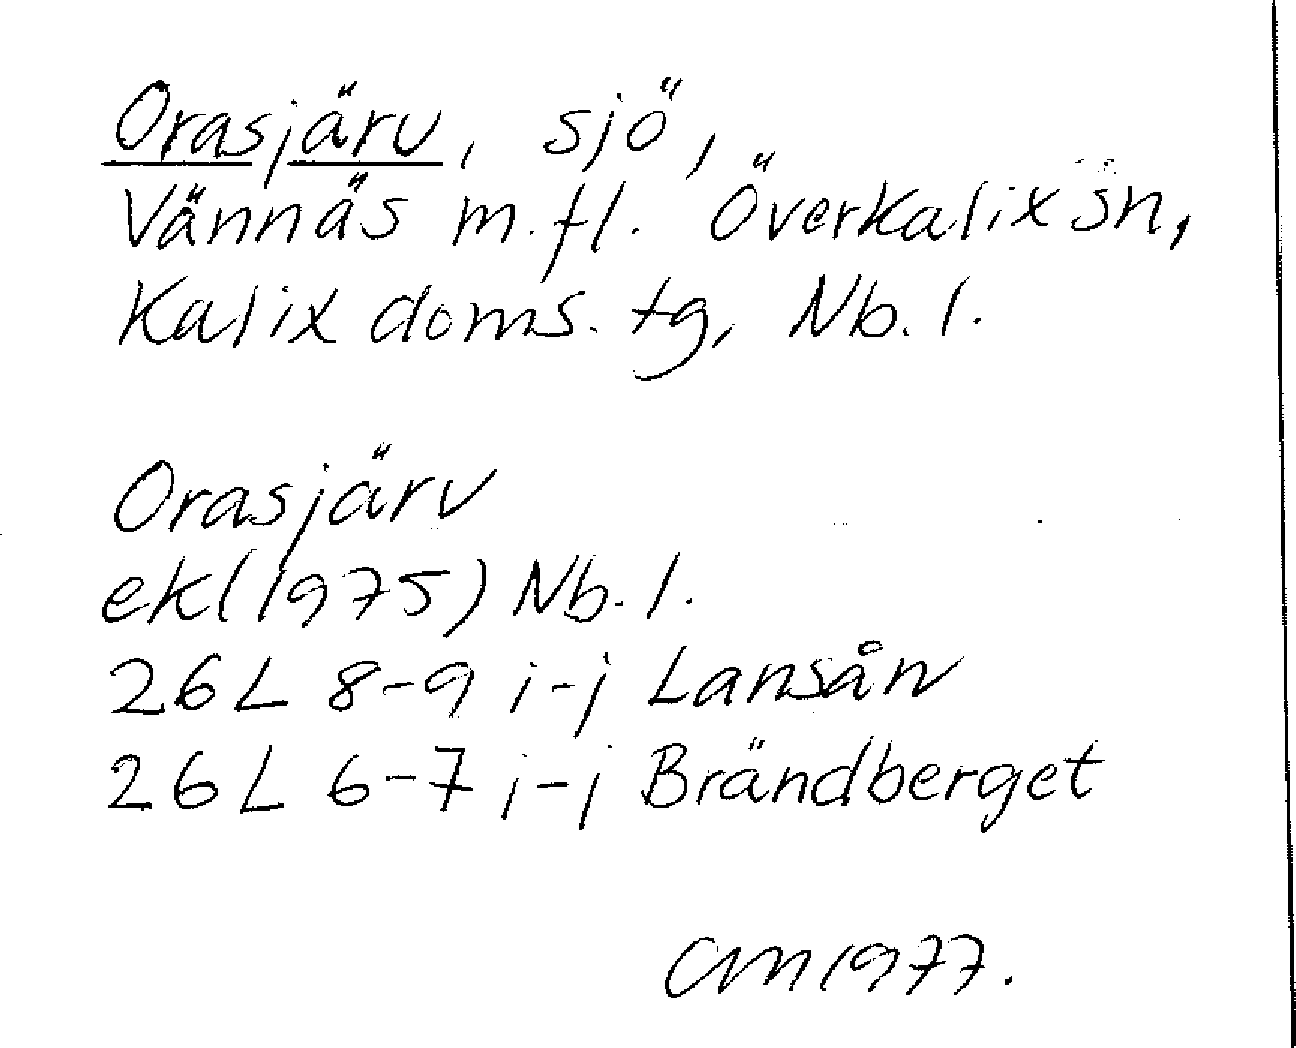 Orasjärv, sjö,
Vännäs m.fl. Överkalix sn,
Kalix doms. tg, Nb. l.
Orasjärv
ek(1975) Nb. l.
26L 8-9 i-j Lansån
26L 6-7 i-j Brändberget
CM 1977.